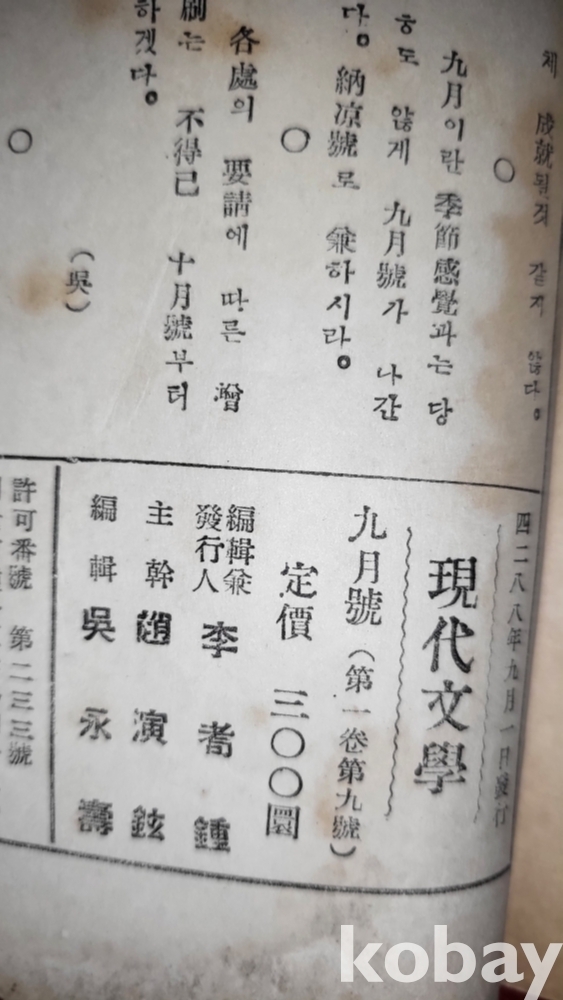 체 成就될것 같지 않다。
○
九月이란 季節感覺과는 당
ㅎ도 않게 九月號가 나간
다。 納凉號로 兼하시라。
○
各處의 要請에 따른 增
刷는 不得已 十月號부터
하겠다。
(吳)
○
四二八八年九月一日發行
現代文學
九月號(第一卷第九號)
定價 三〇〇圜
編輯兼
發行人 李耉鍾
主幹 趙演鉉
編輯 吳永壽
許可番號 第二三三號
kobay